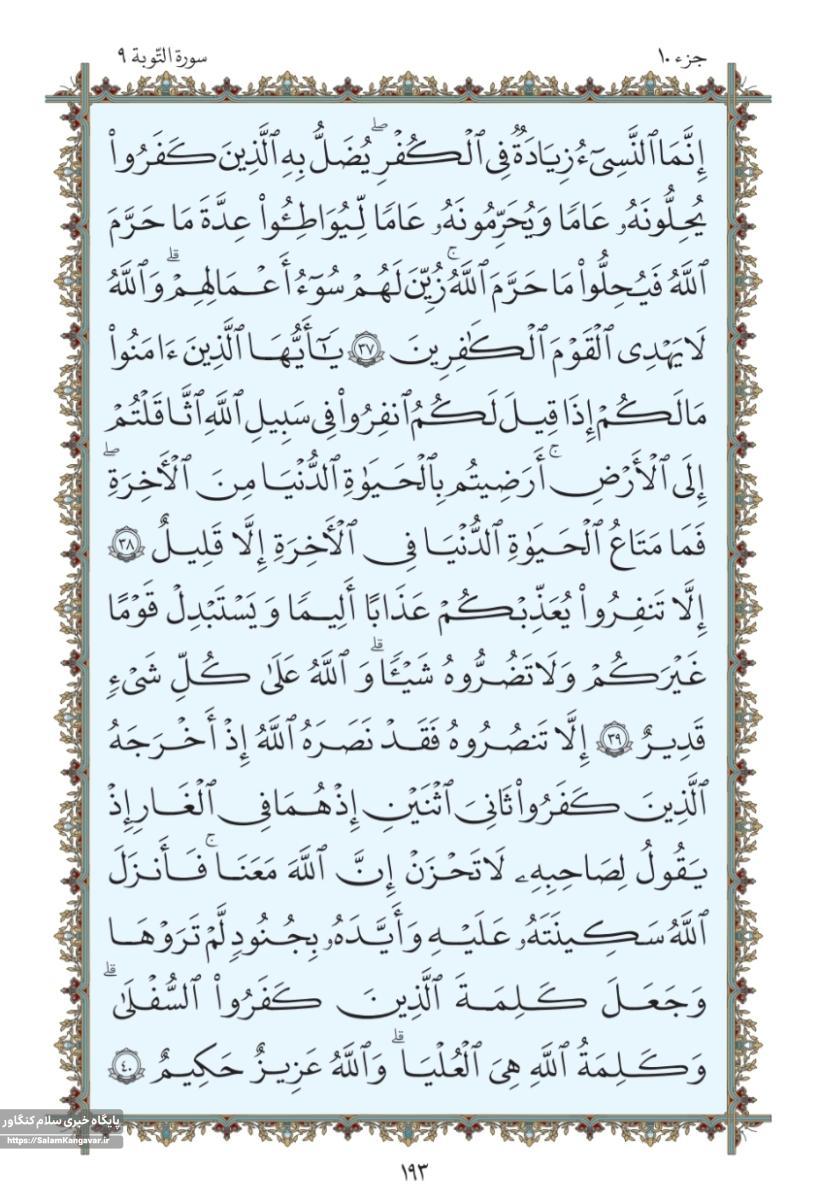 جزء ۱۰
سورة التّوبة ۹
إِنَّمَا ٱلنَّسِىٓءُ زِيَادَةٌ فِى ٱلْكُفْرِ ۖ يُضَلُّ بِهِ ٱلَّذِينَ كَفَرُوا۟
يُحِلُّونَهُۥ عَامًا وَيُحَرِّمُونَهُۥ عَامًا لِّيُوَاطِـُٔوا۟ عِدَّةَ مَا حَرَّمَ
ٱللَّهُ فَيُحِلُّوا۟ مَا حَرَّمَ ٱللَّهُ ۚ زُيِّنَ لَهُمْ سُوٓءُ أَعْمَالِهِمْ ۗ وَٱللَّهُ
لَا يَهْدِى ٱلْقَوْمَ ٱلْكَٰفِرِينَ ۳۷ يَٰٓأَيُّهَا ٱلَّذِينَ ءَامَنُوا۟
مَا لَكُمْ إِذَا قِيلَ لَكُمُ ٱنفِرُوا۟ فِى سَبِيلِ ٱللَّهِ ٱثَّاقَلْتُمْ
إِلَى ٱلْأَرْضِ ۚ أَرَضِيتُم بِٱلْحَيَوٰةِ ٱلدُّنْيَا مِنَ ٱلْءَاخِرَةِ ۖ
فَمَا مَتَاعُ ٱلْحَيَوٰةِ ٱلدُّنْيَا فِى ٱلْءَاخِرَةِ إِلَّا قَلِيلٌ ۳۸
إِلَّا تَنفِرُوا۟ يُعَذِّبْكُمْ عَذَابًا أَلِيمًا وَيَسْتَبْدِلْ قَوْمًا
غَيْرَكُمْ وَلَا تَضُرُّوهُ شَيْـًٔا ۗ وَٱللَّهُ عَلَىٰ كُلِّ شَىْءٍ
قَدِيرٌ ۳۹ إِلَّا تَنصُرُوهُ فَقَدْ نَصَرَهُ ٱللَّهُ إِذْ أَخْرَجَهُ
ٱلَّذِينَ كَفَرُوا۟ ثَانِىَ ٱثْنَيْنِ إِذْ هُمَا فِى ٱلْغَارِ إِذْ
يَقُولُ لِصَاحِبِهِۦ لَا تَحْزَنْ إِنَّ ٱللَّهَ مَعَنَا ۚ فَأَنزَلَ
ٱللَّهُ سَكِينَتَهُۥ عَلَيْهِ وَأَيَّدَهُۥ بِجُنُودٍ لَّمْ تَرَوْهَا
وَجَعَلَ كَلِمَةَ ٱلَّذِينَ كَفَرُوا۟ ٱلسُّفْلَىٰ ۗ
وَكَلِمَةُ ٱللَّهِ هِىَ ٱلْعُلْيَا ۗ وَٱللَّهُ عَزِيزٌ حَكِيمٌ ۴۰
پایگاه خبری سلام کنگاور
https://SalamKangavar.ir
۱۹۳